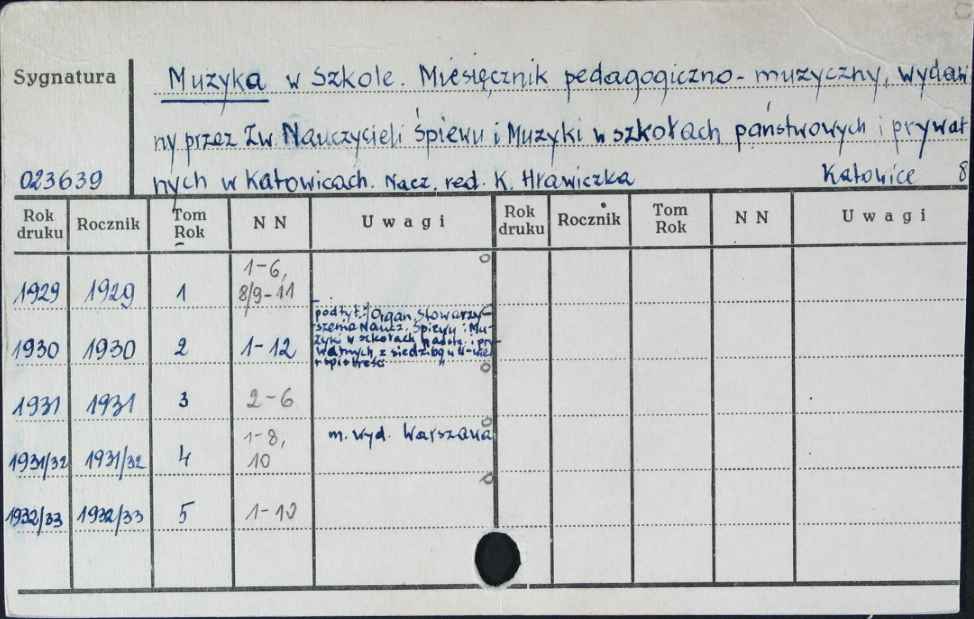 Sygnatura
Muzyka w Szkole. Miesięcznik pedagogiczno-muzyczny, wydaw
ny przez Zw. Nauczycieli Śpiewu i Muzyki w szkołach państwowych i prywat
nych w Katowicach. Nacz. red. K. Hławiczka Katowice 8
023639
Rok druku Rocznik Tom Rok NN Uwagi Rok druku Rocznik Tom Rok NN Uwagi
1929 1929 1 1-6, 8/9-11
podtyt.: Organ Stowarzy-
szenia Naucz. Śpiewu i Mu-
zyki w szkołach państ. i pry
watnych, z siedzibą w
1930 1930 2 1-12
1931 1931 3 2-6
1931/32 1931/32 4 1-8, 10 m. wyd. Warszawa
1932/33 1932/33 5 1-10